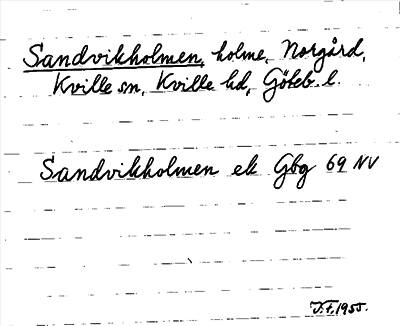 Sandvikholmen, holme, Norgård,
Kville sn, Kville hd, Göteb. l.
Sandvikholmen ek Gbg 69 NV
J.f. 1955.